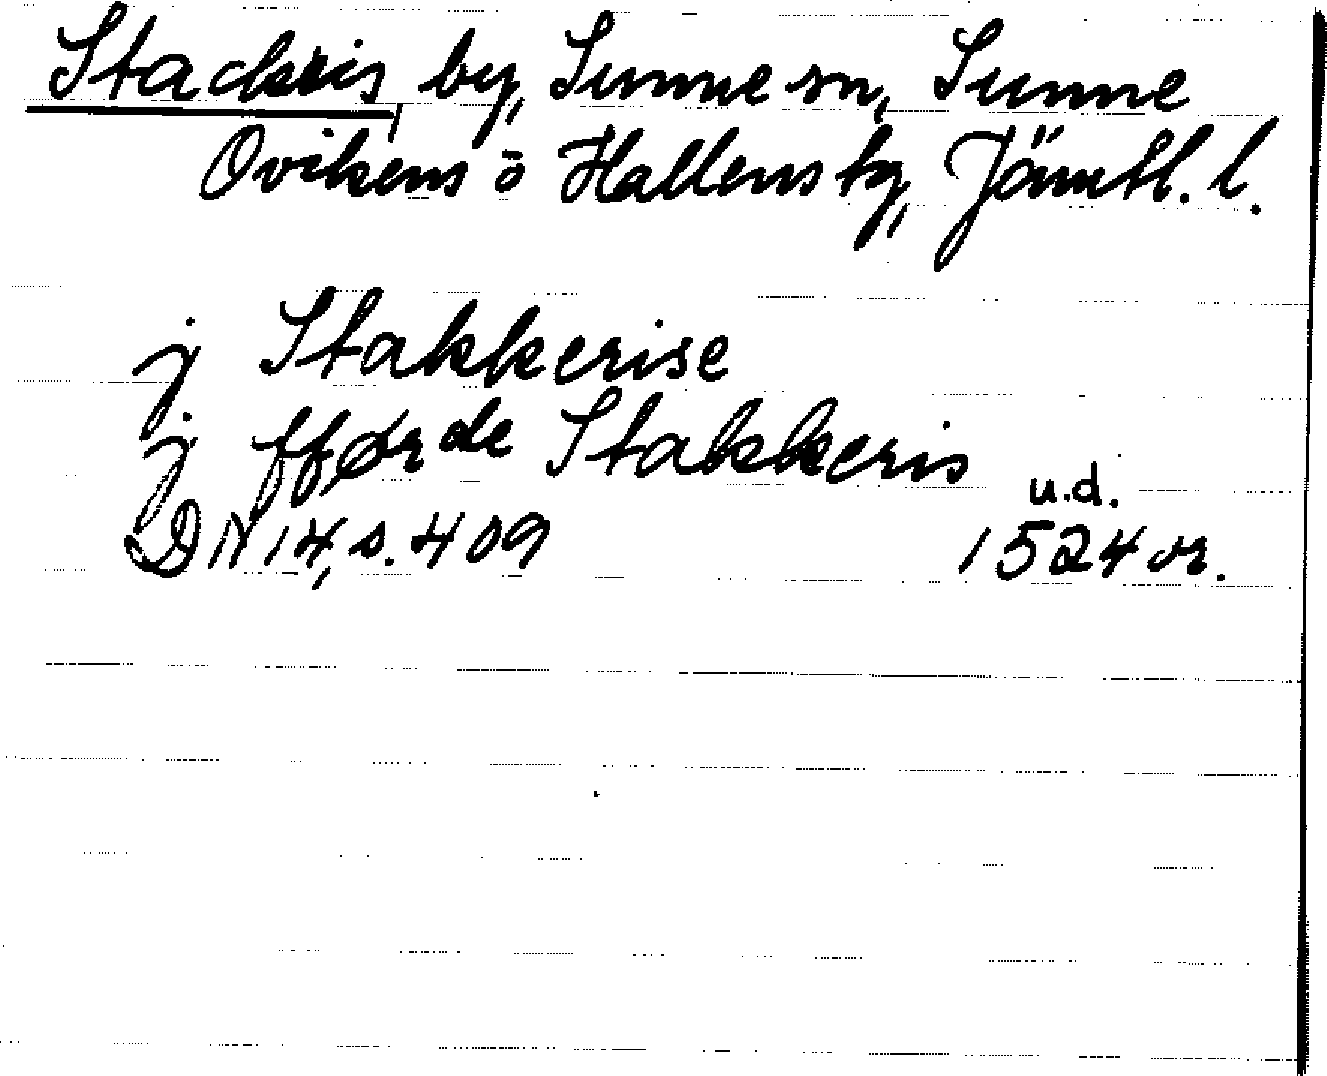 Stackris, by, Sunne sn, Sunne
Ovikens o Hallens tg, Jämtl. l.
j Stakkerise
j fførde Stakkeris u.d.
DN 14, s. 409 1524 or.